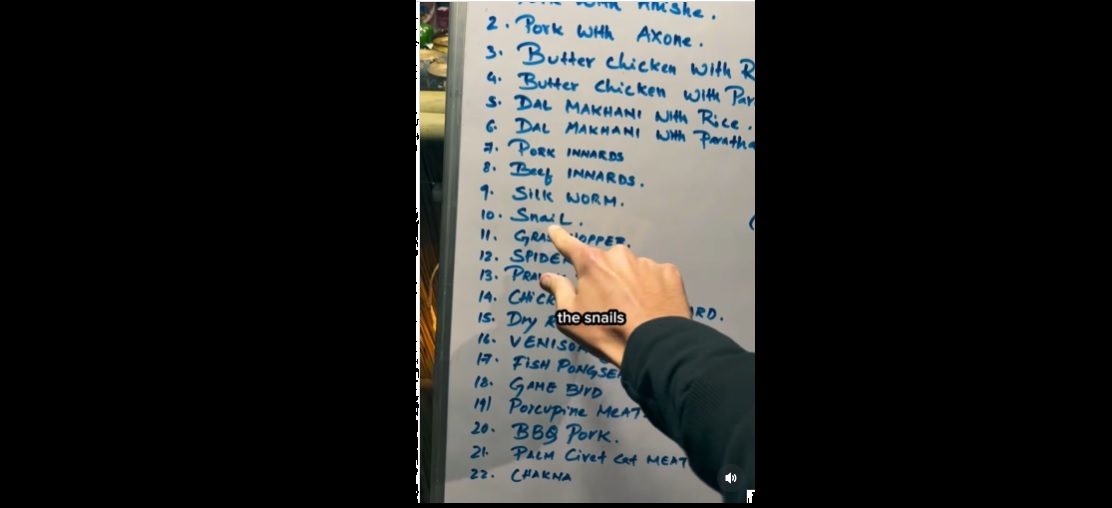 with Anishe.
2. Pork with Axone.
3. Butter chicken with R
4. Butter Chicken with Par
5. DAL MAKHANI with Rice.
6. DAL MAKHANI with Paratha
7. PORK INNARDS
8. Beef INNARDS.
9. SILK WORM.
10. SnaiL.
11. GRAS OPPER.
12. SPIDER
13. PRA
14. CHICK ARD.
15. Dry
the snails
16. VENISO
17. FISH PONGSE
18. GAME BIRD
19) Porcupine MEAT.
20. BBQ Pork.
21. PALM Civet Cat MEAT
22. CHAKNA